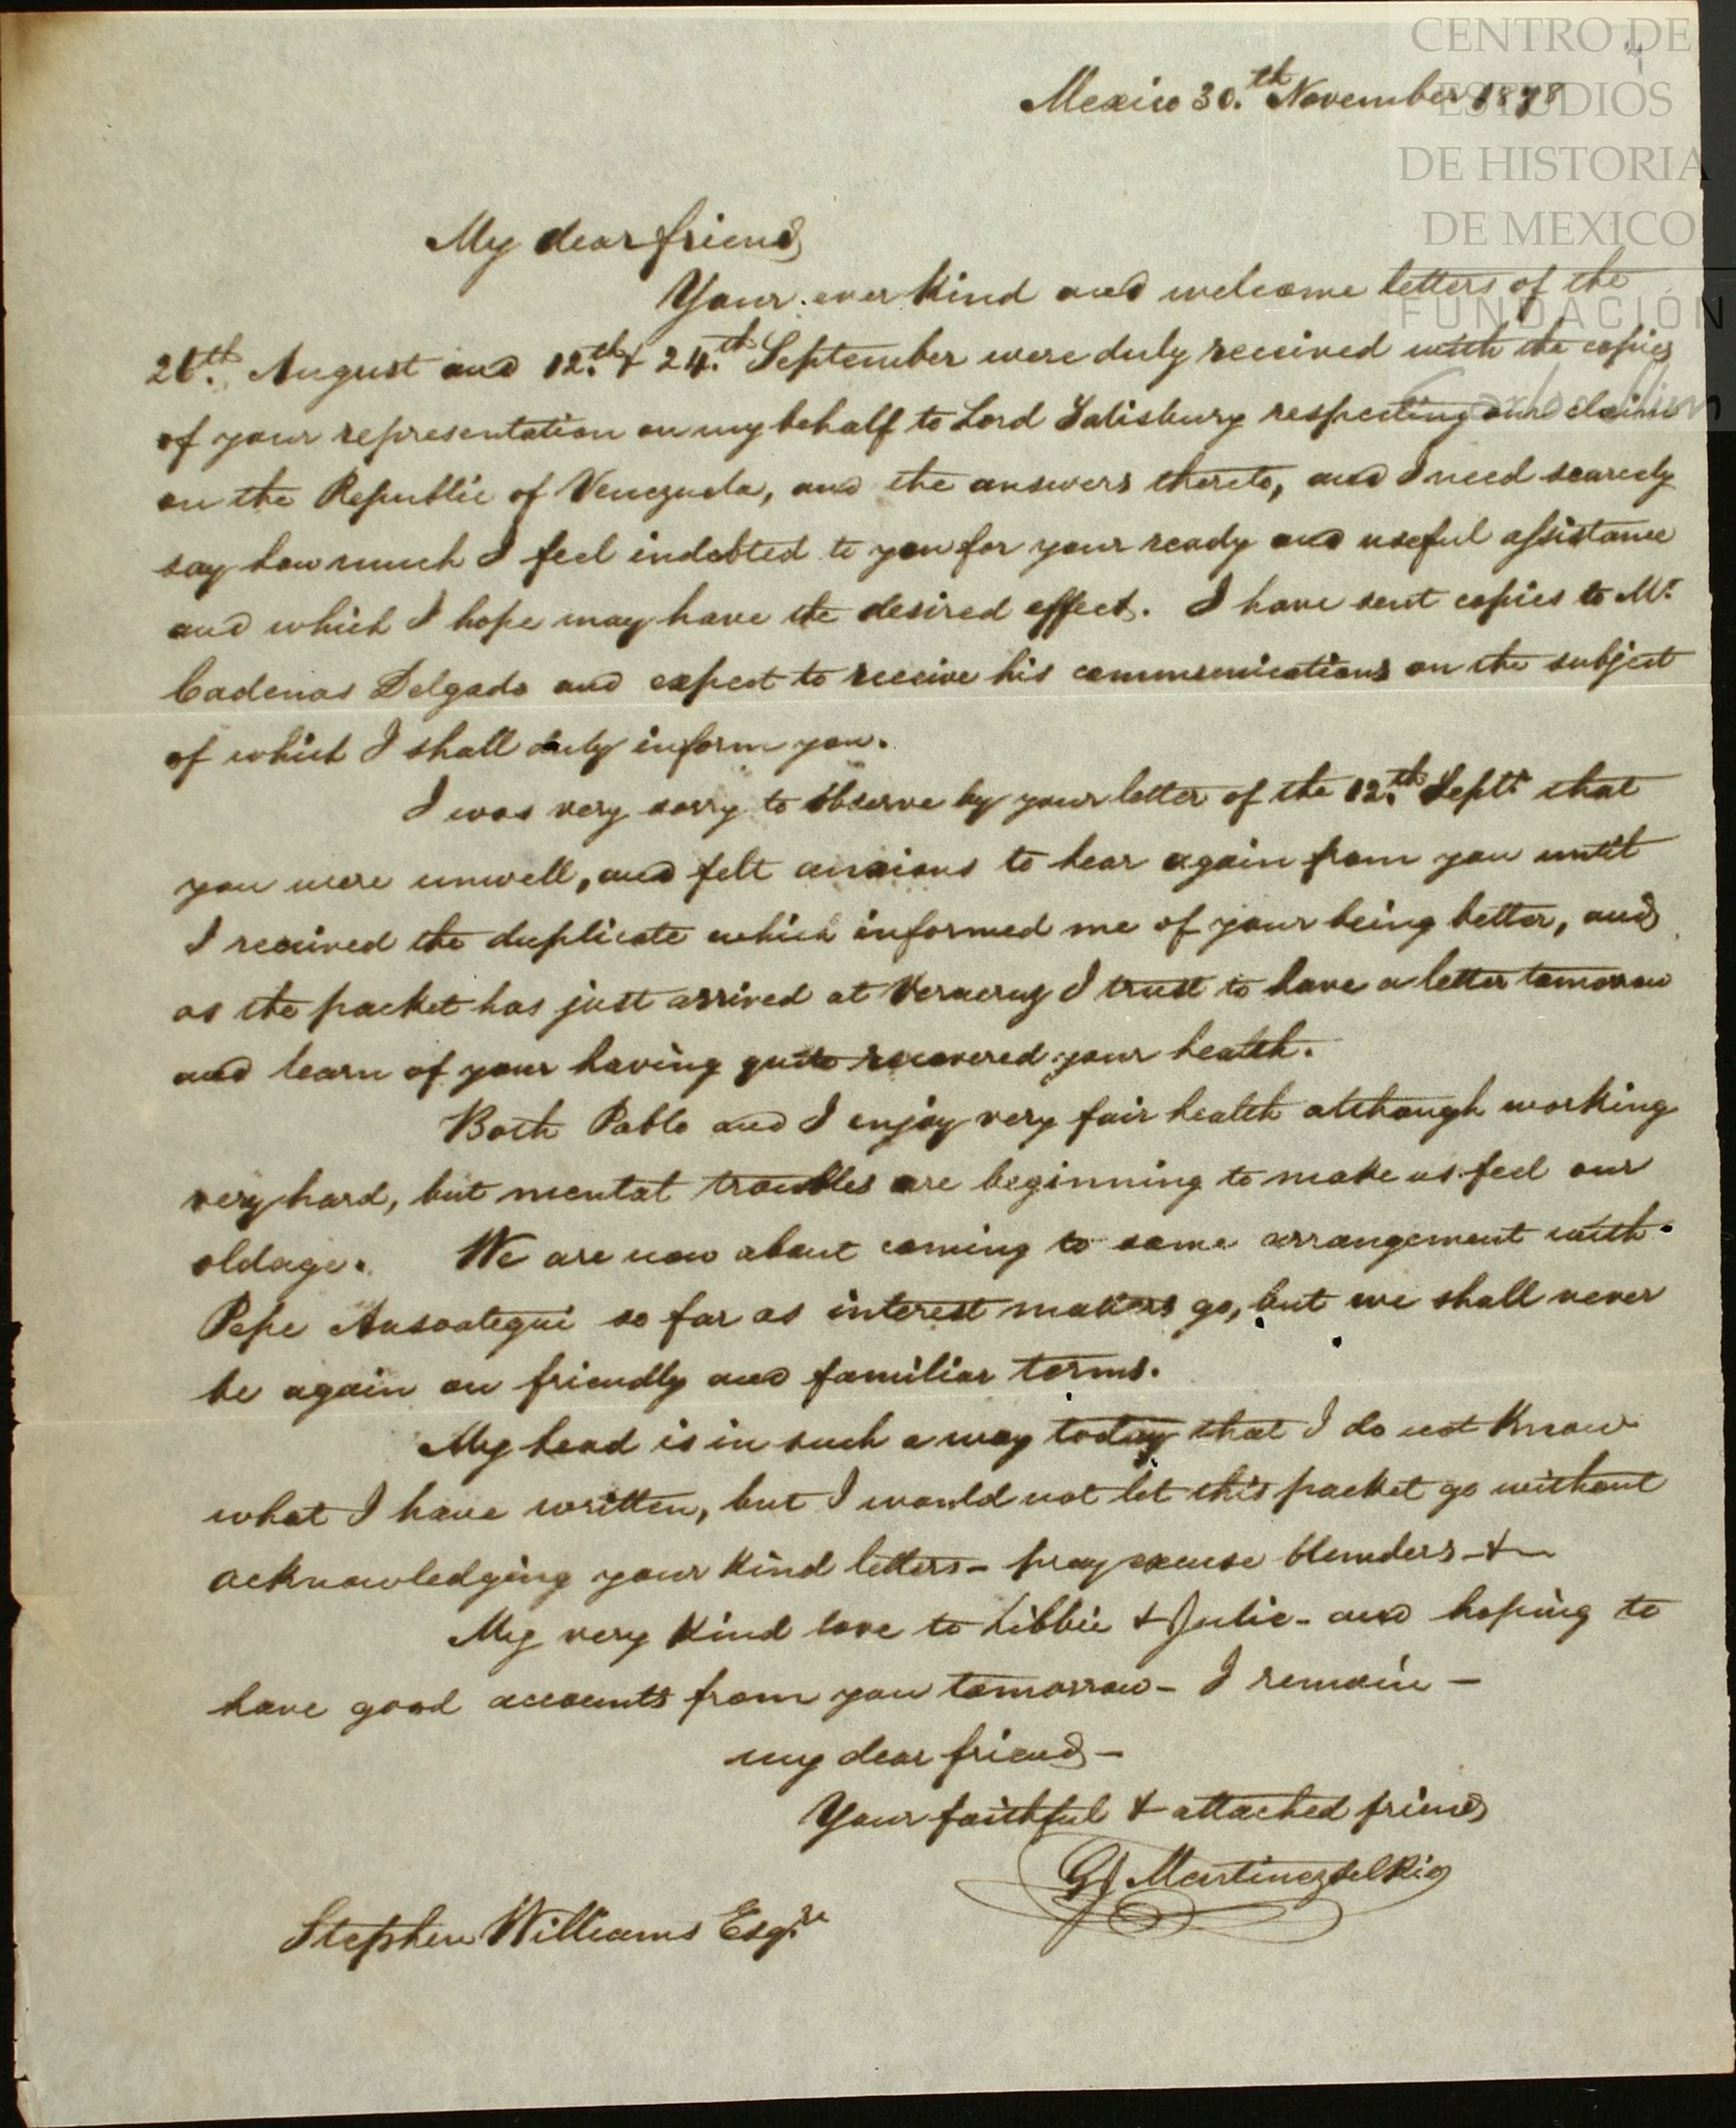 CENTRO DE
ESTUDIOS
DE HISTORIA
DE MEXICO
FUNDACIÓN
4
Mexico 30.th November 1878
My dear friend
Your ever kind and welcome letters of the
August and 12.th & 24.th September were duly received with the copies
of your representation on my behalf to Lord Salisbury respecting our claim
on the Republic of Venezuela, and the answers thereto, and I need scarcely
say how much I feel indebted to you for your ready and useful assistance
and which I hope may have the desired effect. I have sent copies to Mr.
Cadenas Delgado and expect to receive his communications on the subject
of which I shall duly inform you.
I was very sorry to observe by your letter of the 12.th Septr. that
you were unwell, and felt anxious to hear again from you until
I received the duplicate which informed me of your being better, and
as the packet has just arrived at Veracruz I trust to have a letter tomorrow
and learn of your having quite recovered your health.
Both Pablo and I enjoy very fair health although working
very hard, but mental troubles are beginning to make us feel our
oldage. We are now about coming to some arrangement with
Pepe Ansoategui so far as interest matters go, but we shall never
be again on friendly and familiar terms.
My head is in such a way today that I do not know
what I have written, but I would not let this packet go without
acknowledging your kind letters - pray excuse blunders - &
My very kind love to Libbie & Julie - and hoping to
have good accounts from you tomorrow - I remain -
my dear friend -
Your faithful & attached friend
G J Martinez del Rio
Stephen Williams Esqre